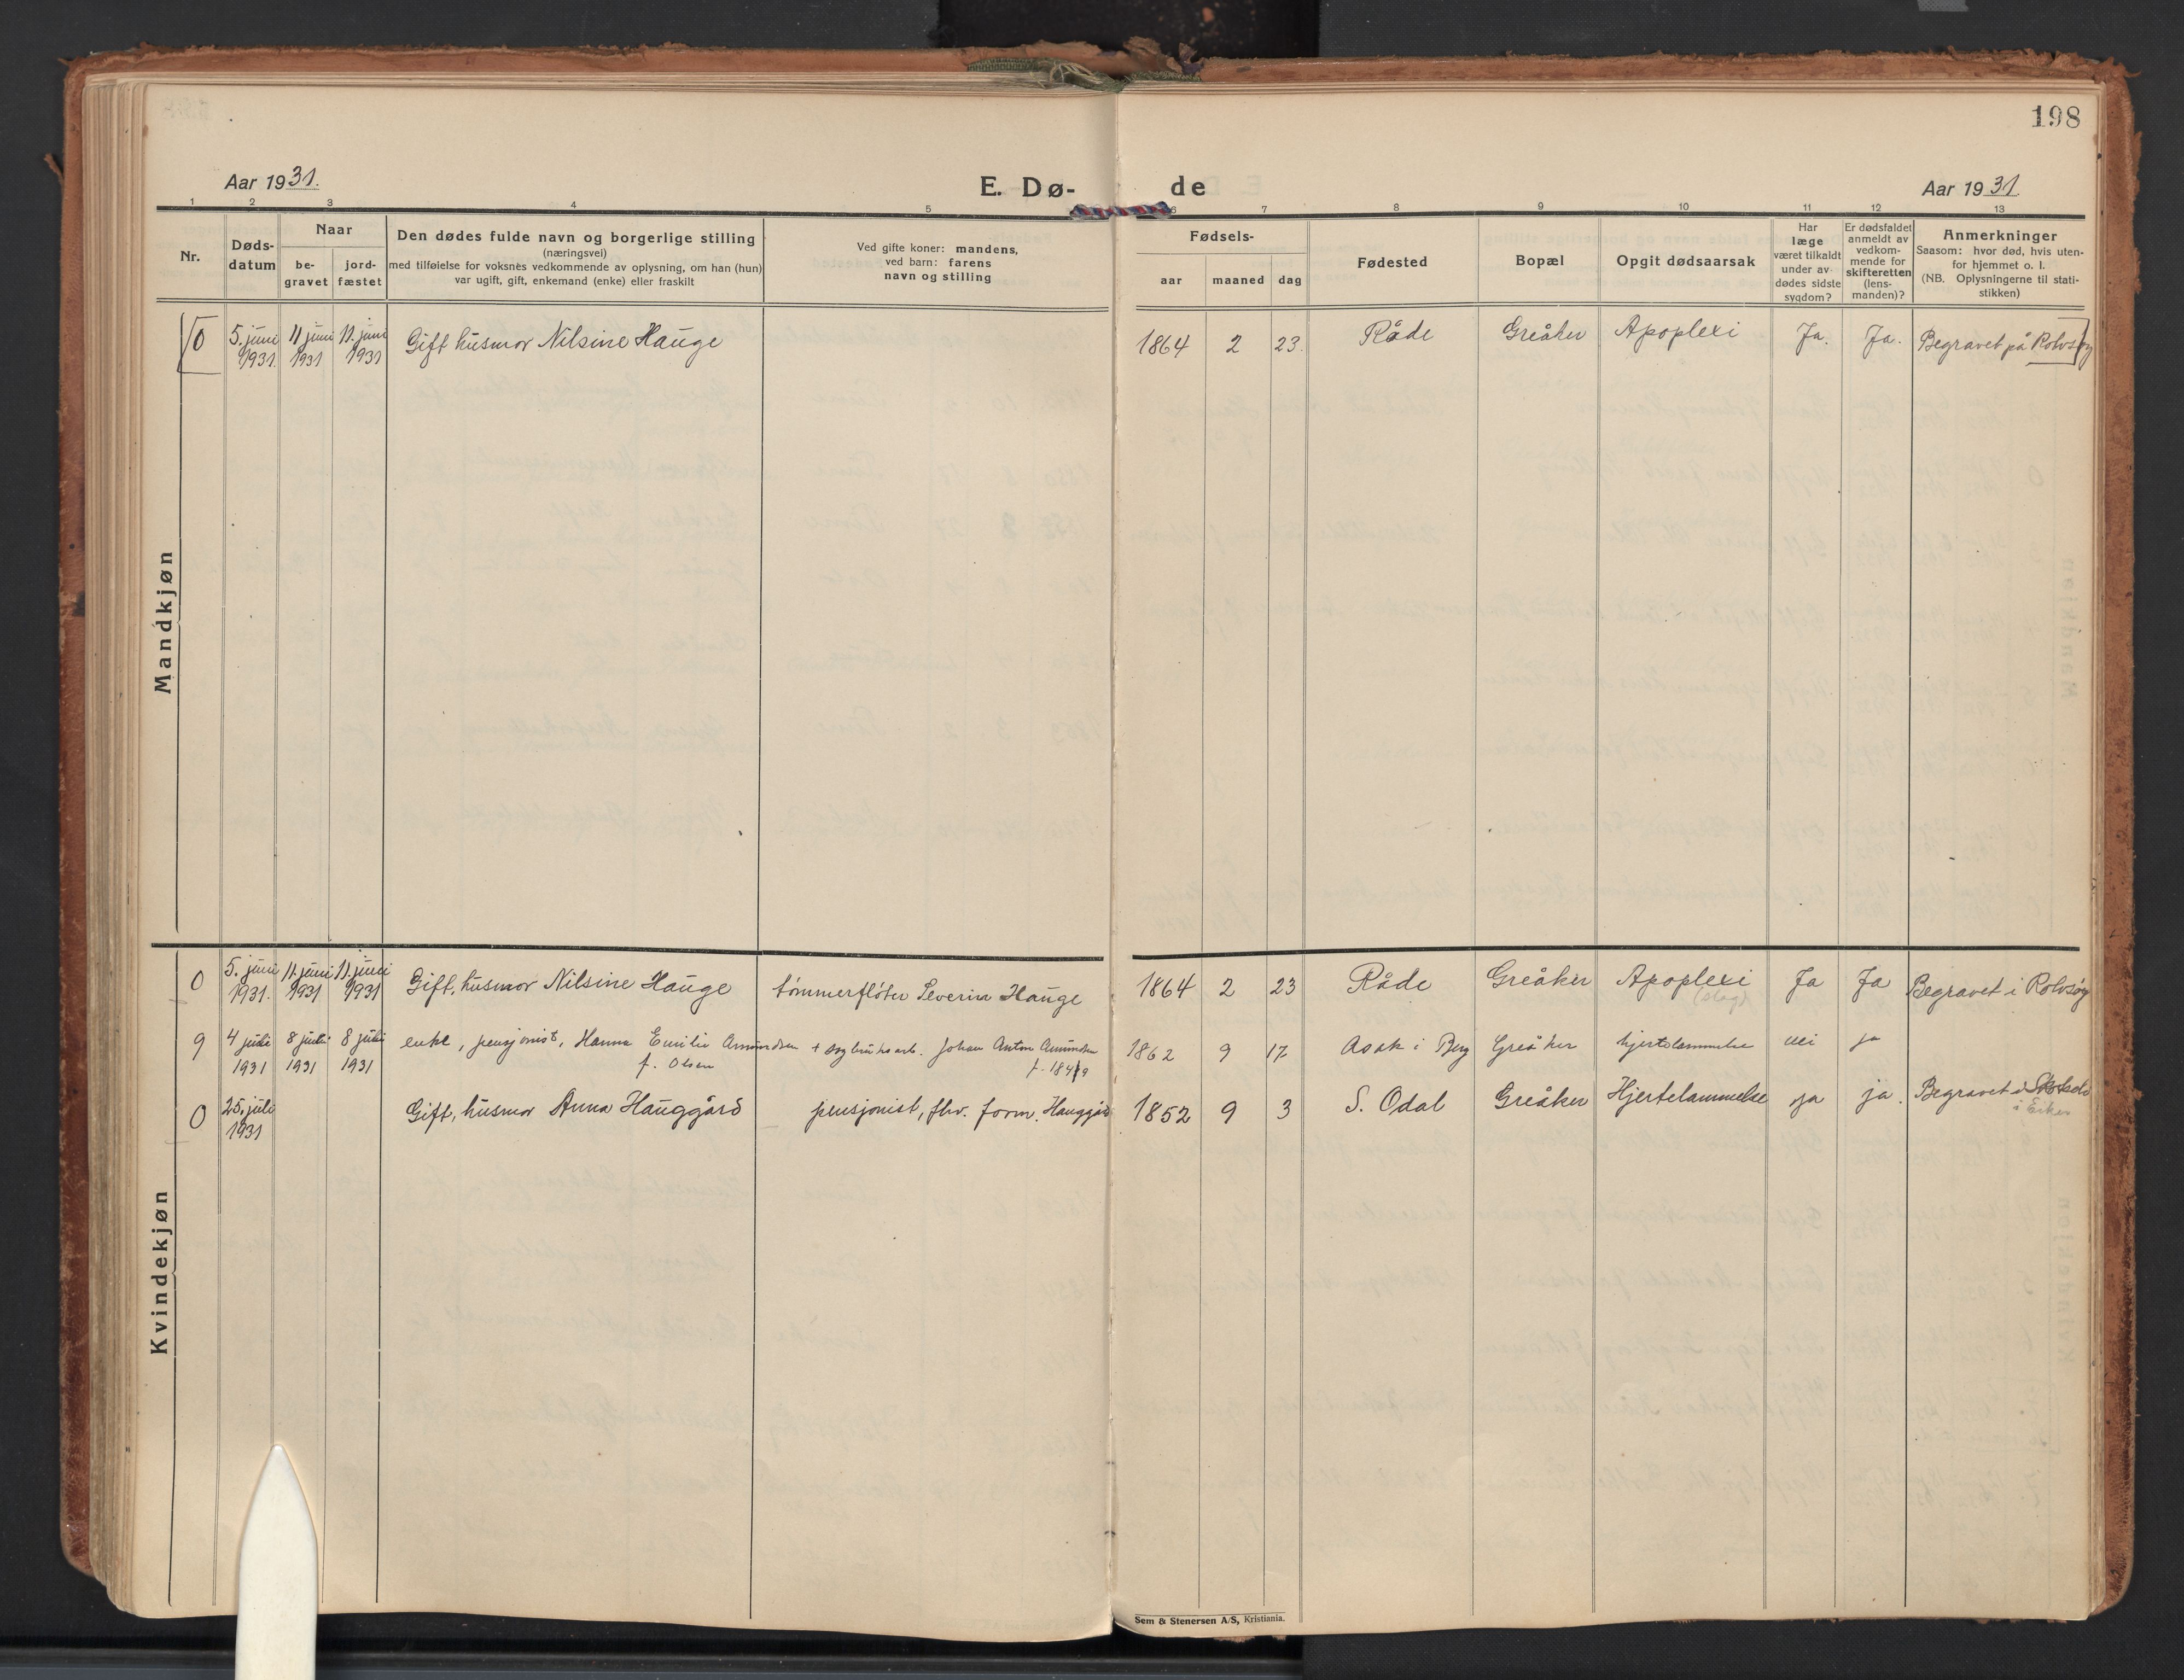 198
Aar 1931.
E. Dø-
de
Aar 1931
1 2 3 4 5 6 7 8 9 10 11 12 13
Nr.
Døds-
datum
Naar
be-
gravet
jord-
fæstet
Den dødes fulde navn og borgerlige stilling
(næringsvei)
med tilføielse for voksnes vedkommende av oplysning, om han (hun)
var ugift, gift, enkemand (enke) eller fraskilt
Ved gifte koner: mandens,
ved barn: farens
navn og stilling
Fødsels-
aar maaned dag
Fødested
Bopæl
Opgit dødsaarsak
Har
læge
været tilkaldt
under av-
dødes sidste
sygdom?
Er dødsfaldet
anmeldt av
vedkom-
mende for
skifteretten
(lens-
manden)?
Anmerkninger
Saasom: hvor død, hvis uten-
for hjemmet o. l.
(NB. Oplysningerne til stati-
stikken)
Mandkjøn
0 5. juni 11 juni 11. juni Gift husmor Nilsine Hauge 1864 2 23. Råde Greåker Apoplexi Ja. Ja. Begravet på Rolvsøy
1931. 1931 1931
Kvindekjøn
0 5. juni 11. juni 11. juni Gift, husmor Nilsine Hauge tømmerfløter Severin Hauge 1864 2 23 Råde Greåker Apoplexi Ja Ja Begravet i Rolvsøy
1931. 1931 1931 (slag)
9 4 juli 8 juli 8 juli enke, pensjonist, Hanna Emilie Amundsen + sagbruksarb. Johan Anton Amundsen 1862 9 17 Asak i Berg Greåker hjertelammelse nei ja
1931 1931 1931 f. Olsen f. 1849
0 25. juli Gift, husmor Anna Hauggård pensjonist, fhv. form. Hauggård 1852 9 3 S. Odal Greåker Hjertelammelse ja ja. Begravet i
1931
Sem & Stenersen A/S, Kristiania.